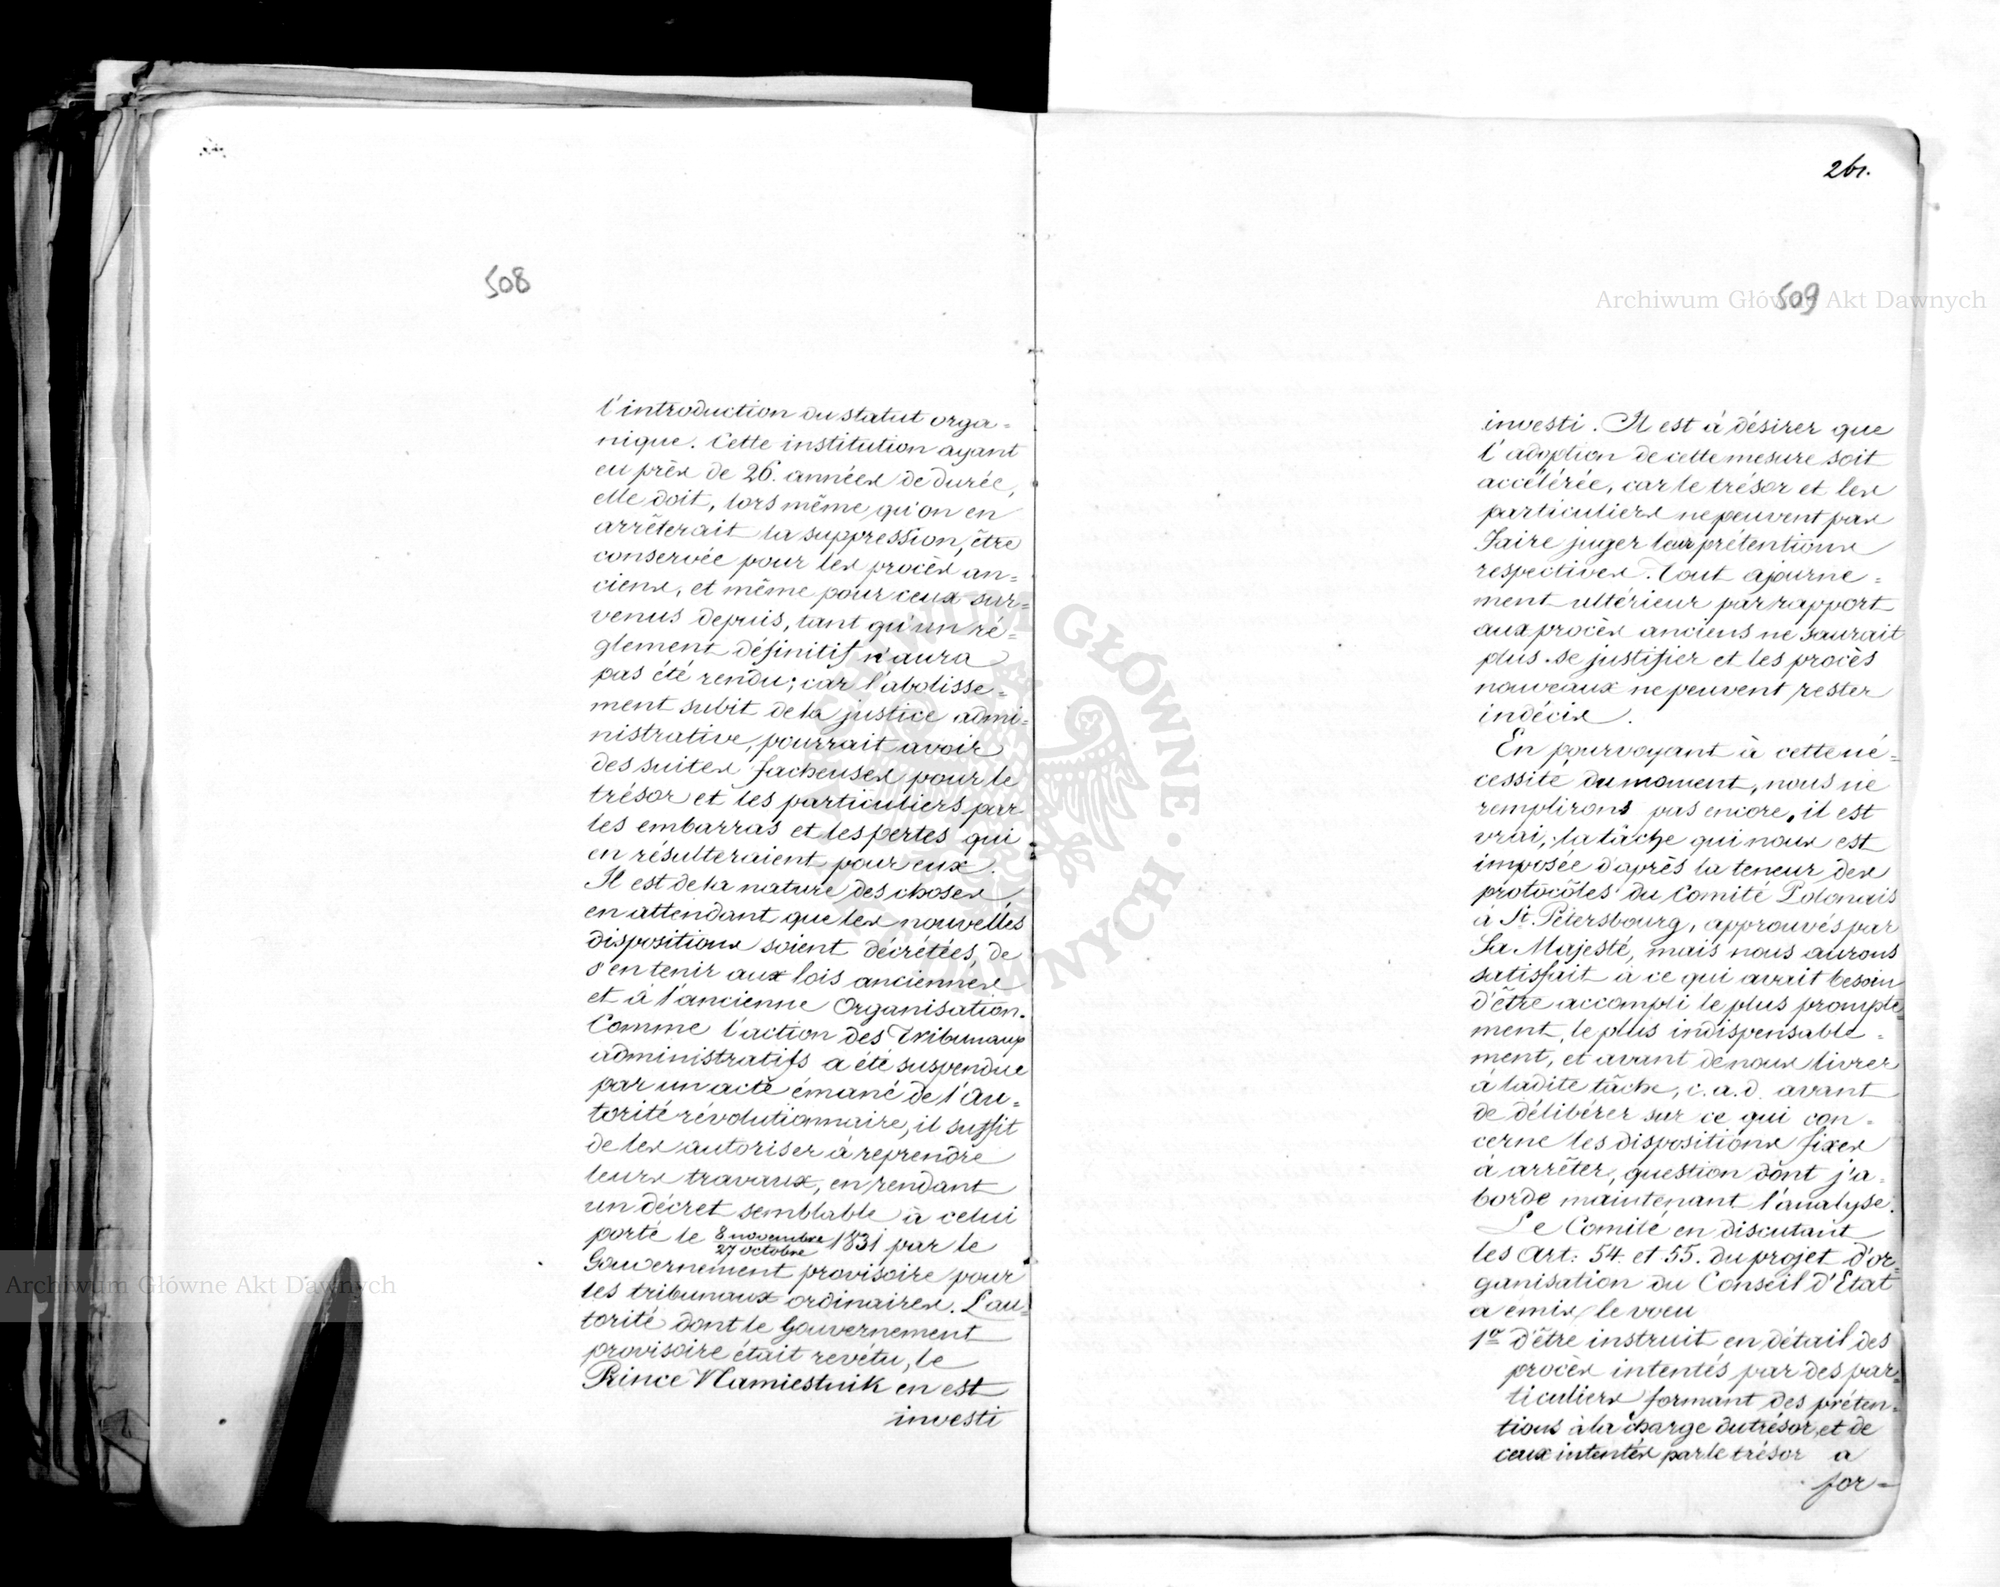 508
l'introduction du statut orga=
nique. Cette institution ayant
eu près de 26. années de durée,
elle doit, lors même qu'on en
arrêterait la suppression, être
conservée pour les procès an=
ciens, et même pour ceux sur=
venus depuis, tant qu'un ré=
glement définitif n'aura
pas été rendu; car l'abolisse=
ment subit de la justice admi=
nistrative, pourrait avoir
des suites facheuses pour le
trésor et les particuliers par
les embarras et les pertes qui
en résulteraient pour eux.
Il est de la nature des choses,
en attendant que les nouvelles
dispositions soient décrétées, de
s'en tenir aux lois anciennes
et à l'ancienne Organisation.
Comme l'action des Tribunaux
administratifs a été suspendue
par un acte émané de l'Au=
torité révolutionnaire, il suffit
de les autoriser à reprendre
leurs travaux, en rendant
un décret semblable à celui
porté le 8 novembre/27 octobre 1831 par le
Gouvernement provisoire pour
les tribunaux ordinaires. L'au=
torité dont le Gouvernement
provisoire était revétu, le
Prince Namiestnik en est
investi
261.
509
investi. Il est à désirer que
l'adoption de cette mesure soit
accélérée, car le trésor et les
particuliers ne peuvent pas
faire juger leur prétentions
respectives. Tout ajourne=
ment ultérieur par rapport
aux procès anciens ne saurait
plus se justifier et les procès
nouveaux ne peuvent rester
indécis.
En pourvoyant à cette né=
cessité du moment, nous ne
remplirons pas encore, il est
vrai, la tâche qui nous est
imposée d'après la teneur des
protocôles du Comité Polonais
à St. Pétersbourg, approuvés par
Sa Majesté, mais nous aurons
satisfait à ce qui avait besoin
d'être accompli le plus prompte=
ment, le plus indispensable=
ment, et avant de nous livrer
à ladite tâche, c.a.d. avant
de délibérer sur ce qui con=
cerne les dispositions fixes
à arrêter, question dont j'a=
borde maintenant l'analyse.
Le Comité en discutant
les Art: 54. et 55. du projet d'or=
ganisation du Conseil d'Etat
a émis le voeu
1º d'être instruit en détail des
procès intentés par des par=
ticuliers formant des préten=
tions à la charge du trésor, et de
ceux intentés par le trésor a
for=
Archiwum Główne Akt Dawnych
Archiwum Główne Akt Dawnych